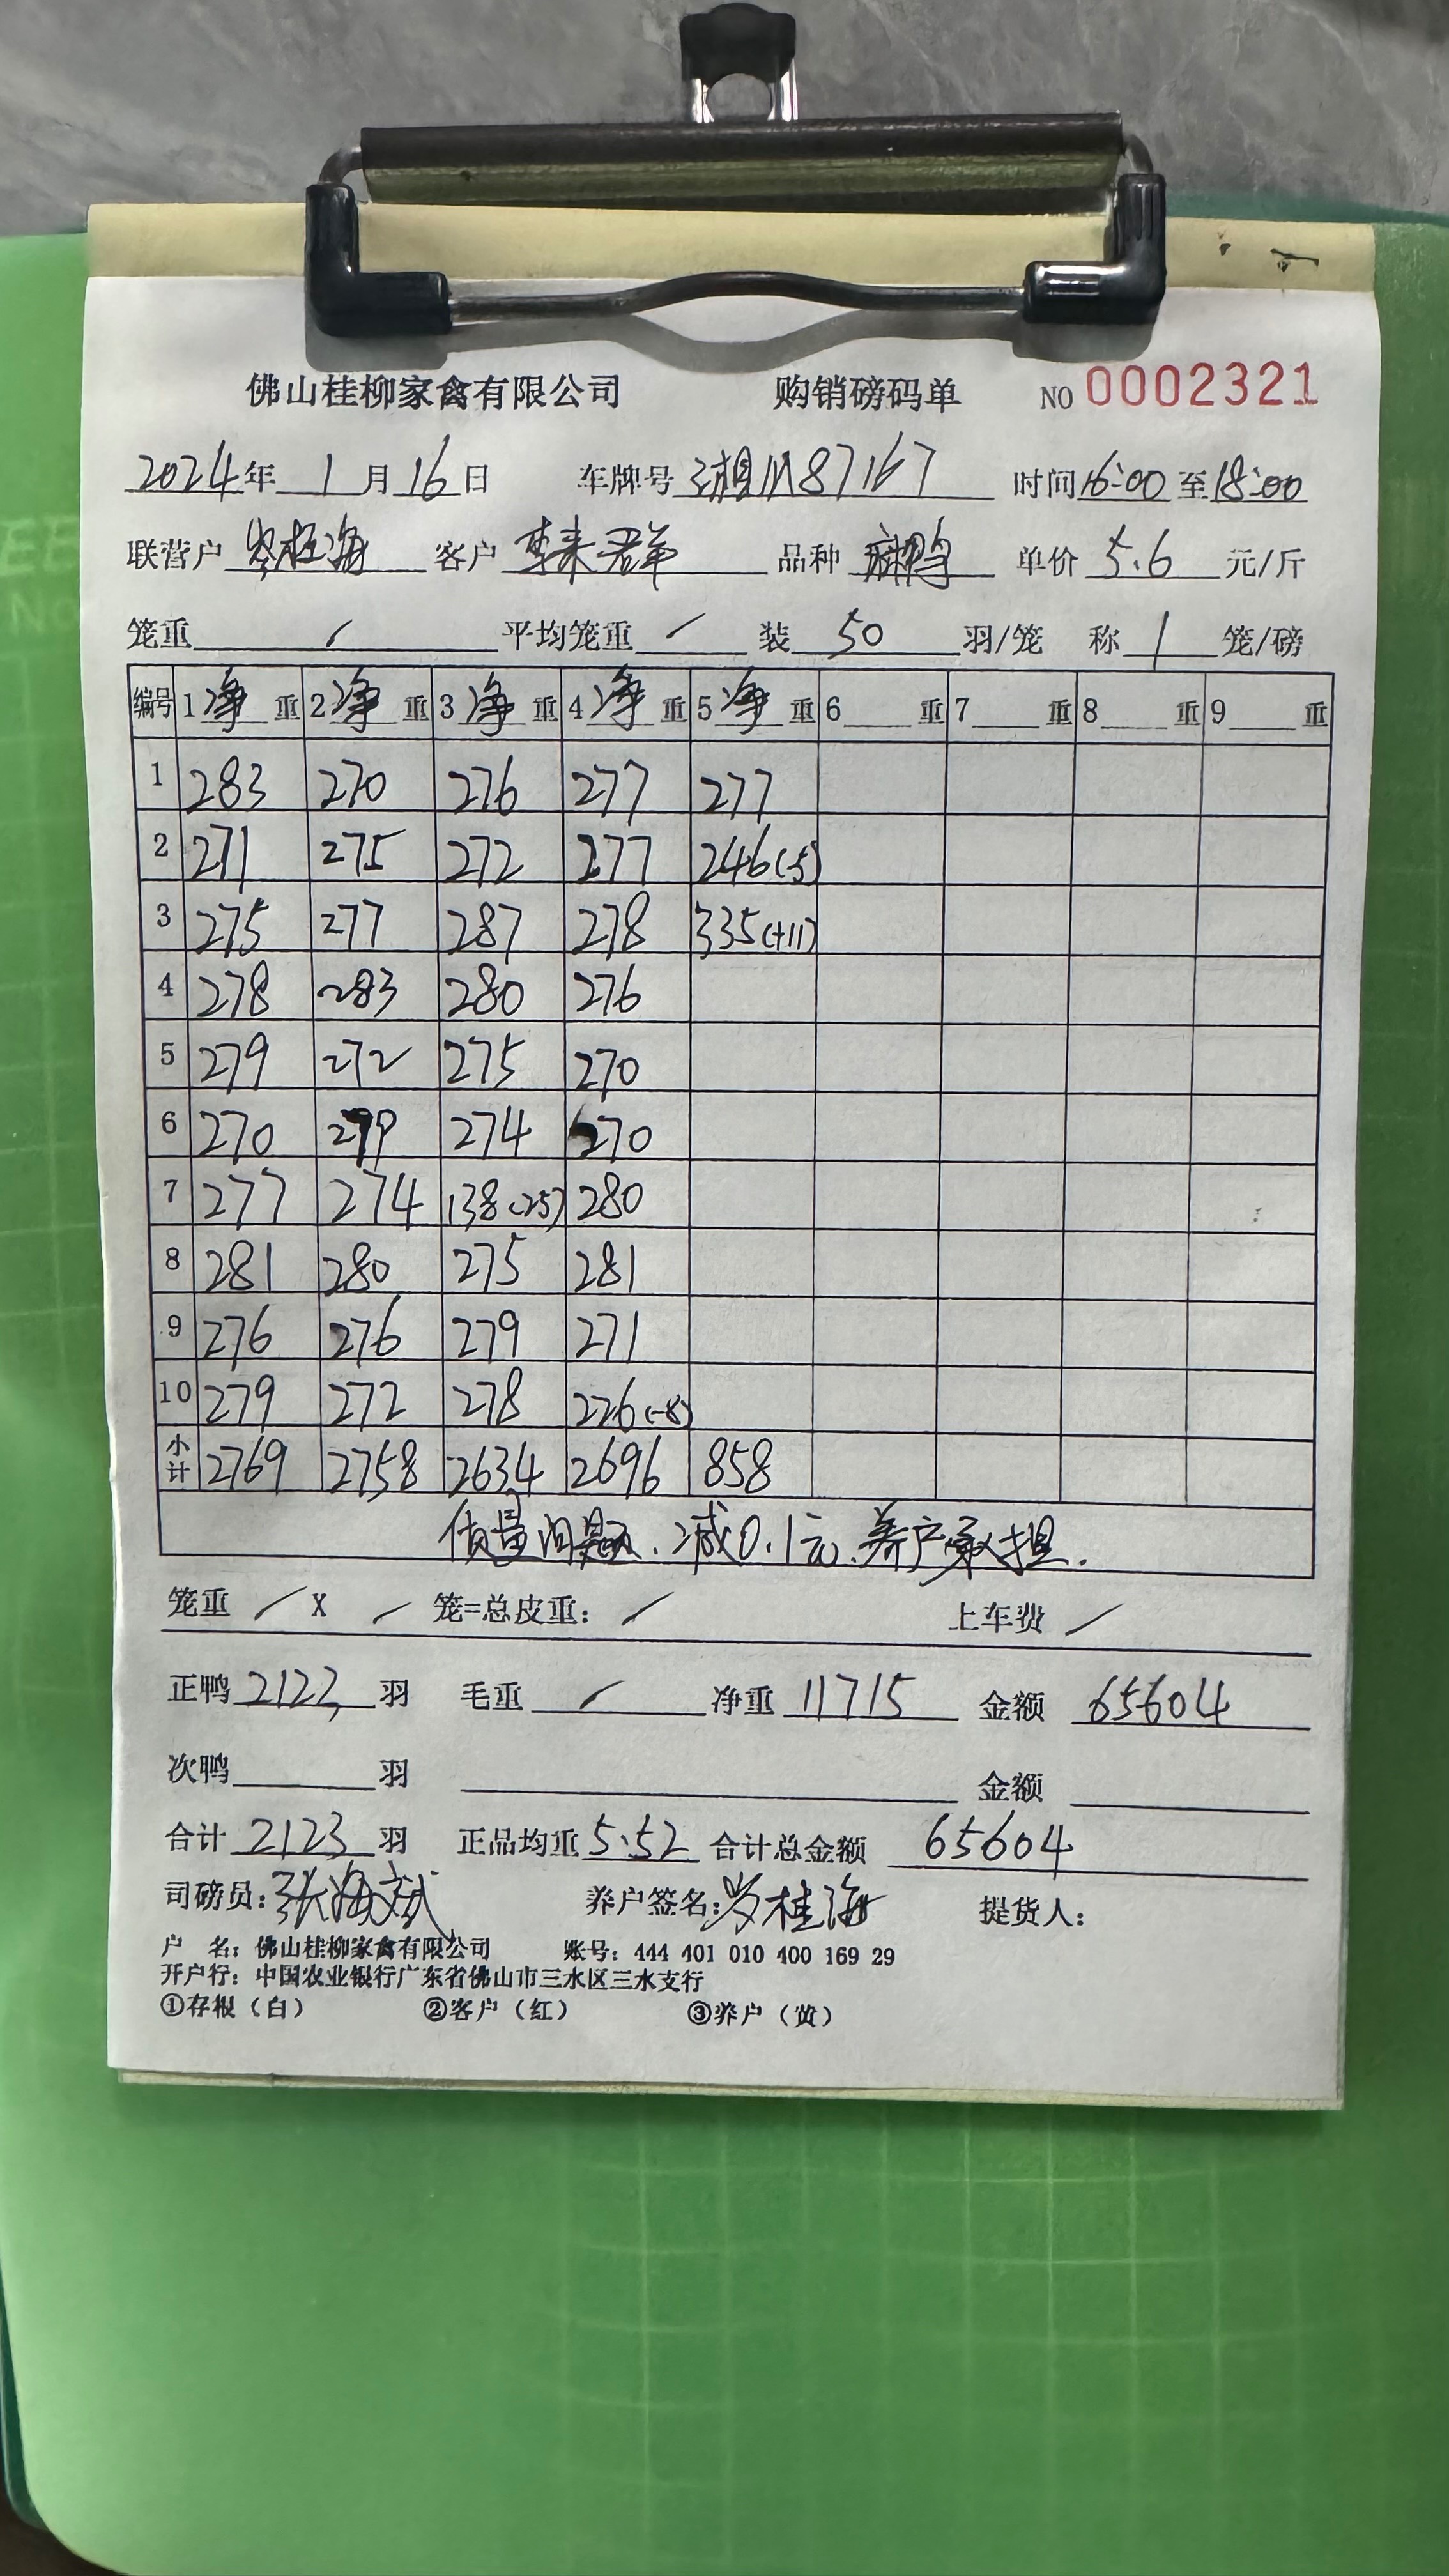 佛山桂柳家禽有限公司 购销磅码单 NO 0002321
2024年 1月16日 车牌号 湘M87167 时间16:00至18:00
联营户 岑桂海 客户 李来君羊 品种 麻鸭 单价 5.6 元/斤
笼重 / 平均笼重 / 装 50 羽/笼 称 1 笼/磅
编号 1净重 2净重 3净重 4净重 5净重 6 重 7 重 8 重 9 重
1 283 270 276 277 277
2 271 275 272 277 246(-5)
3 275 277 287 278 335(+11)
4 278 283 280 276
5 279 272 275 270
6 270 279 274 270
7 277 274 138(25) 280
8 281 280 275 281
9 276 276 279 271
10 279 272 278 226(-8)
小计 2769 2758 2634 2696 858
质量问题.减0.1元.养户承担.
笼重 / X / 笼=总皮重: / 上车费 /
正鸭 2123 羽 毛重 / 净重 11715 金额 65604
次鸭 羽 金额
合计 2123 羽 正品均重 5.52 合计总金额 65604
司磅员:张海斌 养户签名:岑桂海 提货人:
户 名: 佛山桂柳家禽有限公司 账号: 444 401 010 400 169 29
开户行: 中国农业银行广东省佛山市三水区三水支行
①存根(白) ②客户(红) ③养户(黄)